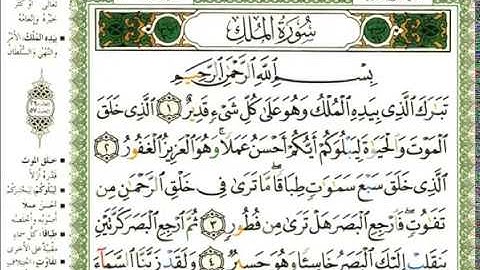 سُورَةُ الْمُلْكِ
بِسْمِ اللَّهِ الرَّحْمَٰنِ الرَّحِيمِ
تَبَارَكَ الَّذِي بِيَدِهِ الْمُلْكُ وَهُوَ عَلَىٰ كُلِّ شَيْءٍ قَدِيرٌ ١ الَّذِي خَلَقَ
الْمَوْتَ وَالْحَيَوٰةَ لِيَبْلُوَكُمْ أَيُّكُمْ أَحْسَنُ عَمَلًا ۚ وَهُوَ الْعَزِيزُ الْغَفُورُ ٢
الَّذِي خَلَقَ سَبْعَ سَمَٰوَٰتٍ طِبَاقًا ۖ مَّا تَرَىٰ فِي خَلْقِ الرَّحْمَٰنِ مِن
تَفَٰوُتٍ ۖ فَارْجِعِ الْبَصَرَ هَلْ تَرَىٰ مِن فُطُورٍ ٣ ثُمَّ ارْجِعِ الْبَصَرَ كَرَّتَيْنِ
يَنقَلِبْ إِلَيْكَ الْبَصَرُ خَاسِئًا وَهُوَ حَسِيرٌ ٤ وَلَقَدْ زَيَّنَّا السَّمَآءَ
تعالى أو كثر
خيره وإنعامه
بيده الملك: الأمر
والنهي والسلطان
خلق الموت
قدره أزلاً
ليبلوكم ليختبركم
أحسن عملا
أصوبه وأخلصه
طباقا: كل سماء
مقبية على الأخرى
تفاوت: اختلاف